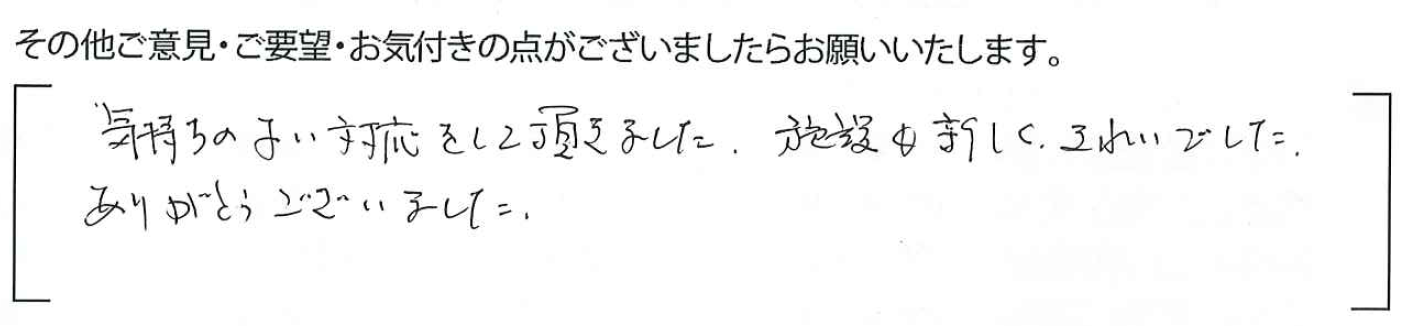 その他ご意見・ご要望・お気付きの点がございましたらお願いいたします。
気持ちのよい対応をして頂きました。施設も新しく、きれいでした。
ありがとうございました。